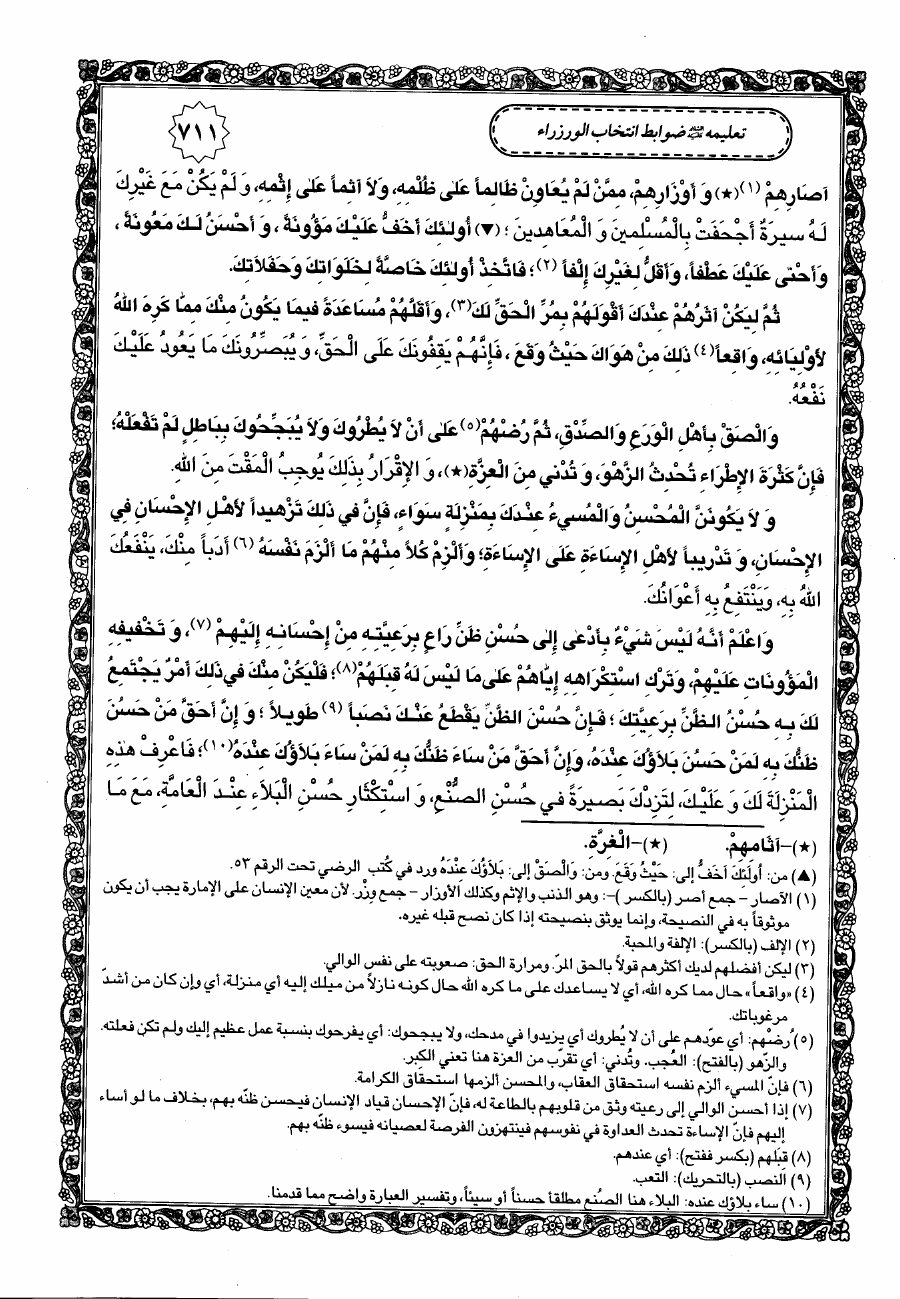 تعليمه ﷺ ضوابط انتخاب الورزراء
٧١١
آصَارِهِمْ (١)(★) وَ أَوْزَارِهِمْ، مِمَّنْ لَمْ يُعَاوِنْ ظَالِماً عَلىٰ ظُلْمِهِ، وَلاَ آثِماً عَلىٰ إِثْمِهِ، وَ لَمْ يَكُنْ مَعَ غَيْرِكَ
لَهُ سيرَةٌ أَجْحَفَتْ بِالْمُسْلِمينَ وَ الْمُعَاهِدينَ ؛ (▼) أُولٰئِكَ أَخَفُّ عَلَيْكَ مَؤُونَةً ، وَ أَحْسَنُ لَكَ مَعُونَةً ،
وَ أَحْنى عَلَيْكَ عَطْفاً، وَأَقَلُّ لِغَيْرِكَ إِلْفاً (٢)؛ فَاتَّخِذْ أُولٰئِكَ خَاصَّةً لِخَلَوَاتِكَ وَحَفَلاَتِكَ.
ثُمَّ لِيَكُنْ آثَرُهُمْ عِنْدَكَ أَقْوَلَهُمْ بِمُرِّ الْحَقِّ لَكَ(٣)، وَأَقَلُّهُمْ مُسَاعَدَةً فيمَا يَكُونُ مِنْكَ مِمَّا كَرِهَ اللهُ
لِأَوْلِيَائِهِ، وَاقِعاً(٤) ذٰلِكَ مِنْ هَوَاكَ حَيْثُ وَقَعَ ، فَإِنَّهُمْ يَقِفُونَكَ عَلَى الْحَقِّ، وَ يُبَصِّرُونَكَ مَا يَعُودُ عَلَيْكَ
نَفْعُهُ.
وَالْصَقْ بِأَهْلِ الْوَرَعِ وَالصِّدْقِ، ثُمَّ رُضْهُمْ(٥) عَلىٰ أَنْ لاَ يُطْرُوكَ وَلاَ يُبَجِّحُوكَ بِبَاطِلٍ لَمْ تَفْعَلْهُ؛
فَإِنَّ كَثْرَةَ الإِطْرَاءِ تُحْدِثُ الزَّهْوَ، وَ تُدْني مِنَ الْعِزَّةِ(★)، وَ الإِقْرَارُ بِذٰلِكَ يُوجِبُ الْمَقْتَ مِنَ اللهِ.
وَ لاَ يَكُونَنَّ الْمُحْسِنُ وَالْمُسيءُ عِنْدَكَ بِمَنْزِلَةٍ سَوَاءٍ، فَإِنَّ في ذٰلِكَ تَزْهيداً لأَهْلِ الإِحْسَانِ فِي
الإِحْسَانِ، وَ تَدْريباً لأَهْلِ الإِسَاءَةِ عَلَى الإِسَاءَةِ؛ وَأَلْزِمْ كُلاًّ مِنْهُمْ مَا أَلْزَمَ نَفْسَهُ (٦) أَدَباً مِنْكَ، يَنْفَعُكَ
اللهُ بِهِ، وَيَنْتَفِعُ بِهِ أَعْوَانُكَ.
وَاعْلَمْ أَنَّهُ لَيْسَ شَيْءٌ بِأَدْعىٰ إِلىٰ حُسْنِ ظَنِّ رَاعٍ بِرَعِيَّتِهِ مِنْ إِحْسَانِهِ إِلَيْهِمْ (٧)، وَ تَخْفيفِهِ
الْمَؤُونَاتِ عَلَيْهِمْ، وَتَرْكِ اسْتِكْرَاهِهِ إِيَّاهُمْ عَلىٰ مَا لَيْسَ لَهُ قِبَلَهُمْ(٨)؛ فَلْيَكُنْ مِنْكَ في ذٰلِكَ أَمْرٌ يَجْتَمِعُ
لَكَ بِهِ حُسْنُ الظَّنِّ بِرَعِيَّتِكَ ؛ فَإِنَّ حُسْنَ الظَّنِّ يَقْطَعُ عَنْكَ نَصَباً (٩) طَويلاً ؛ وَ إِنَّ أَحَقَّ مَنْ حَسُنَ
ظَنُّكَ بِهِ لَمَنْ حَسُنَ بَلاَؤُكَ عِنْدَهُ، وَإِنَّ أَحَقَّ مَنْ سَاءَ ظَنُّكَ بِهِ لَمَنْ سَاءَ بَلاَؤُكَ عِنْدَهُ(١٠)؛ فَاعْرِفْ هٰذِهِ
الْمَنْزِلَةَ لَكَ وَ عَلَيْكَ، لِتَزِدْكَ بَصيرَةً في حُسْنِ الصُّنْعِ، وَ اسْتِكْثَارِ حُسْنِ الْبَلاَءِ عِنْدَ الْعَامَّةِ، مَعَ مَا
(★)-آثامهمْ. (★)-الْغِرَّةِ.
(▲) من: أُولٰئِكَ أَخَفُّ إلى: حَيْثُ وَقَعَ. ومن: وَالْصَقْ إلى: بَلاَؤُكَ عِنْدَهُ ورد في كُتب الرضي تحت الرقم ٥٣.
(١) الآصار - جمع أصر (بالكسر )-: وهو الذنب والإثم وكذلك الأوزار - جمع وِزْر. لأن معين الإنسان على الإمارة يجب أن يكون
موثوقاً به في النصيحة، وإنما يوثق بنصيحته إذا كان نصح قبله غيره.
(٢) الإلف (بالكسر): الإلفة والمحبة.
(٣) ليكن أفضلهم لديك أكثرهم قولاً بالحق المرّ. ومرارة الحق: صعوبته على نفس الوالي.
(٤) «واقعاً» حال مما كره الله، أي لا يساعدك على ما كره الله حال كونه نازلاً من ميلك إليه أي منزلة، أي وإن كان من أشدّ
مرغوباتك.
(٥) رُضْهم: أي عوّدهم على أن لا يُطروك أي يزيدوا في مدحك، ولا يبجحوك: أي يفرحوك بنسبة عمل عظيم إليك ولم تكن فعلته.
والزّهو (بالفتح): العُجب. وتُدني: أي تقرّب من العزة هنا تعني الكِبر.
(٦) فإنّ المسيء ألزم نفسه استحقاق العقاب، والمحسن ألزمها استحقاق الكرامة.
(٧) إذا أحسن الوالي إلى رعيته وثق من قلوبهم بالطاعة له، فإنّ الإحسان قياد الإنسان فيحسن ظنّه بهم، بخلاف ما لو أساء
إليهم فإنّ الإساءة تحدث العداوة في نفوسهم فينتهزون الفرصة لعصيانه فيسوء ظنّه بهم.
(٨) قِبَلهم (بكسر ففتح): أي عندهم.
(٩) النصب (بالتحريك): التعب.
(١٠) ساء بلاؤك عنده: البلاء هنا الصُنع مطلقاً حسناً أو سيئاً، وتفسير العبارة واضح مما قدمنا.